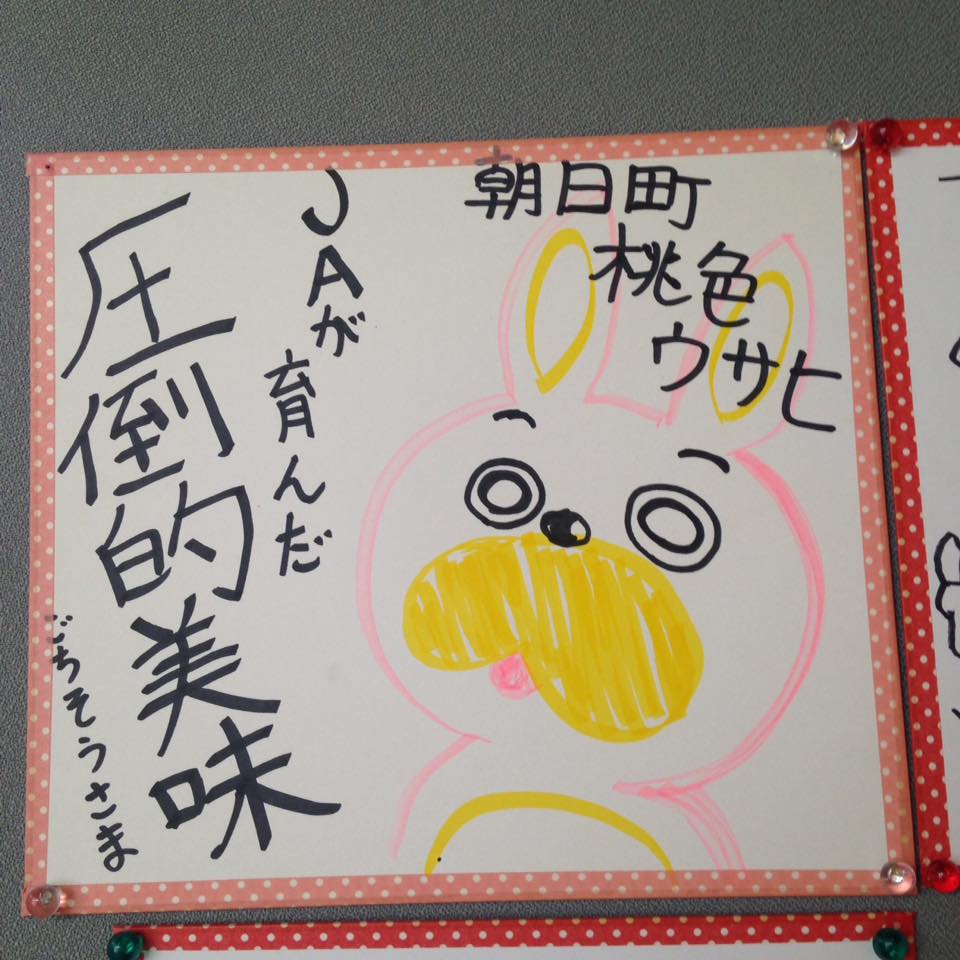 朝日町
桃色
ウサヒ
JAが
育んだ
圧倒的美味
ごちそうさま